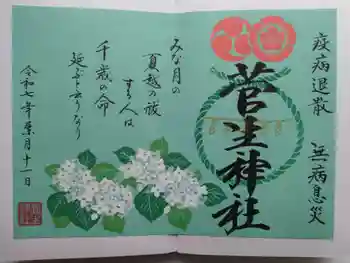 疫病退散　無病息災
菅生神社
みな月の
夏越の祓
する人は
千歳の命
延ぶと云ふなり
令和七年葉月十一日